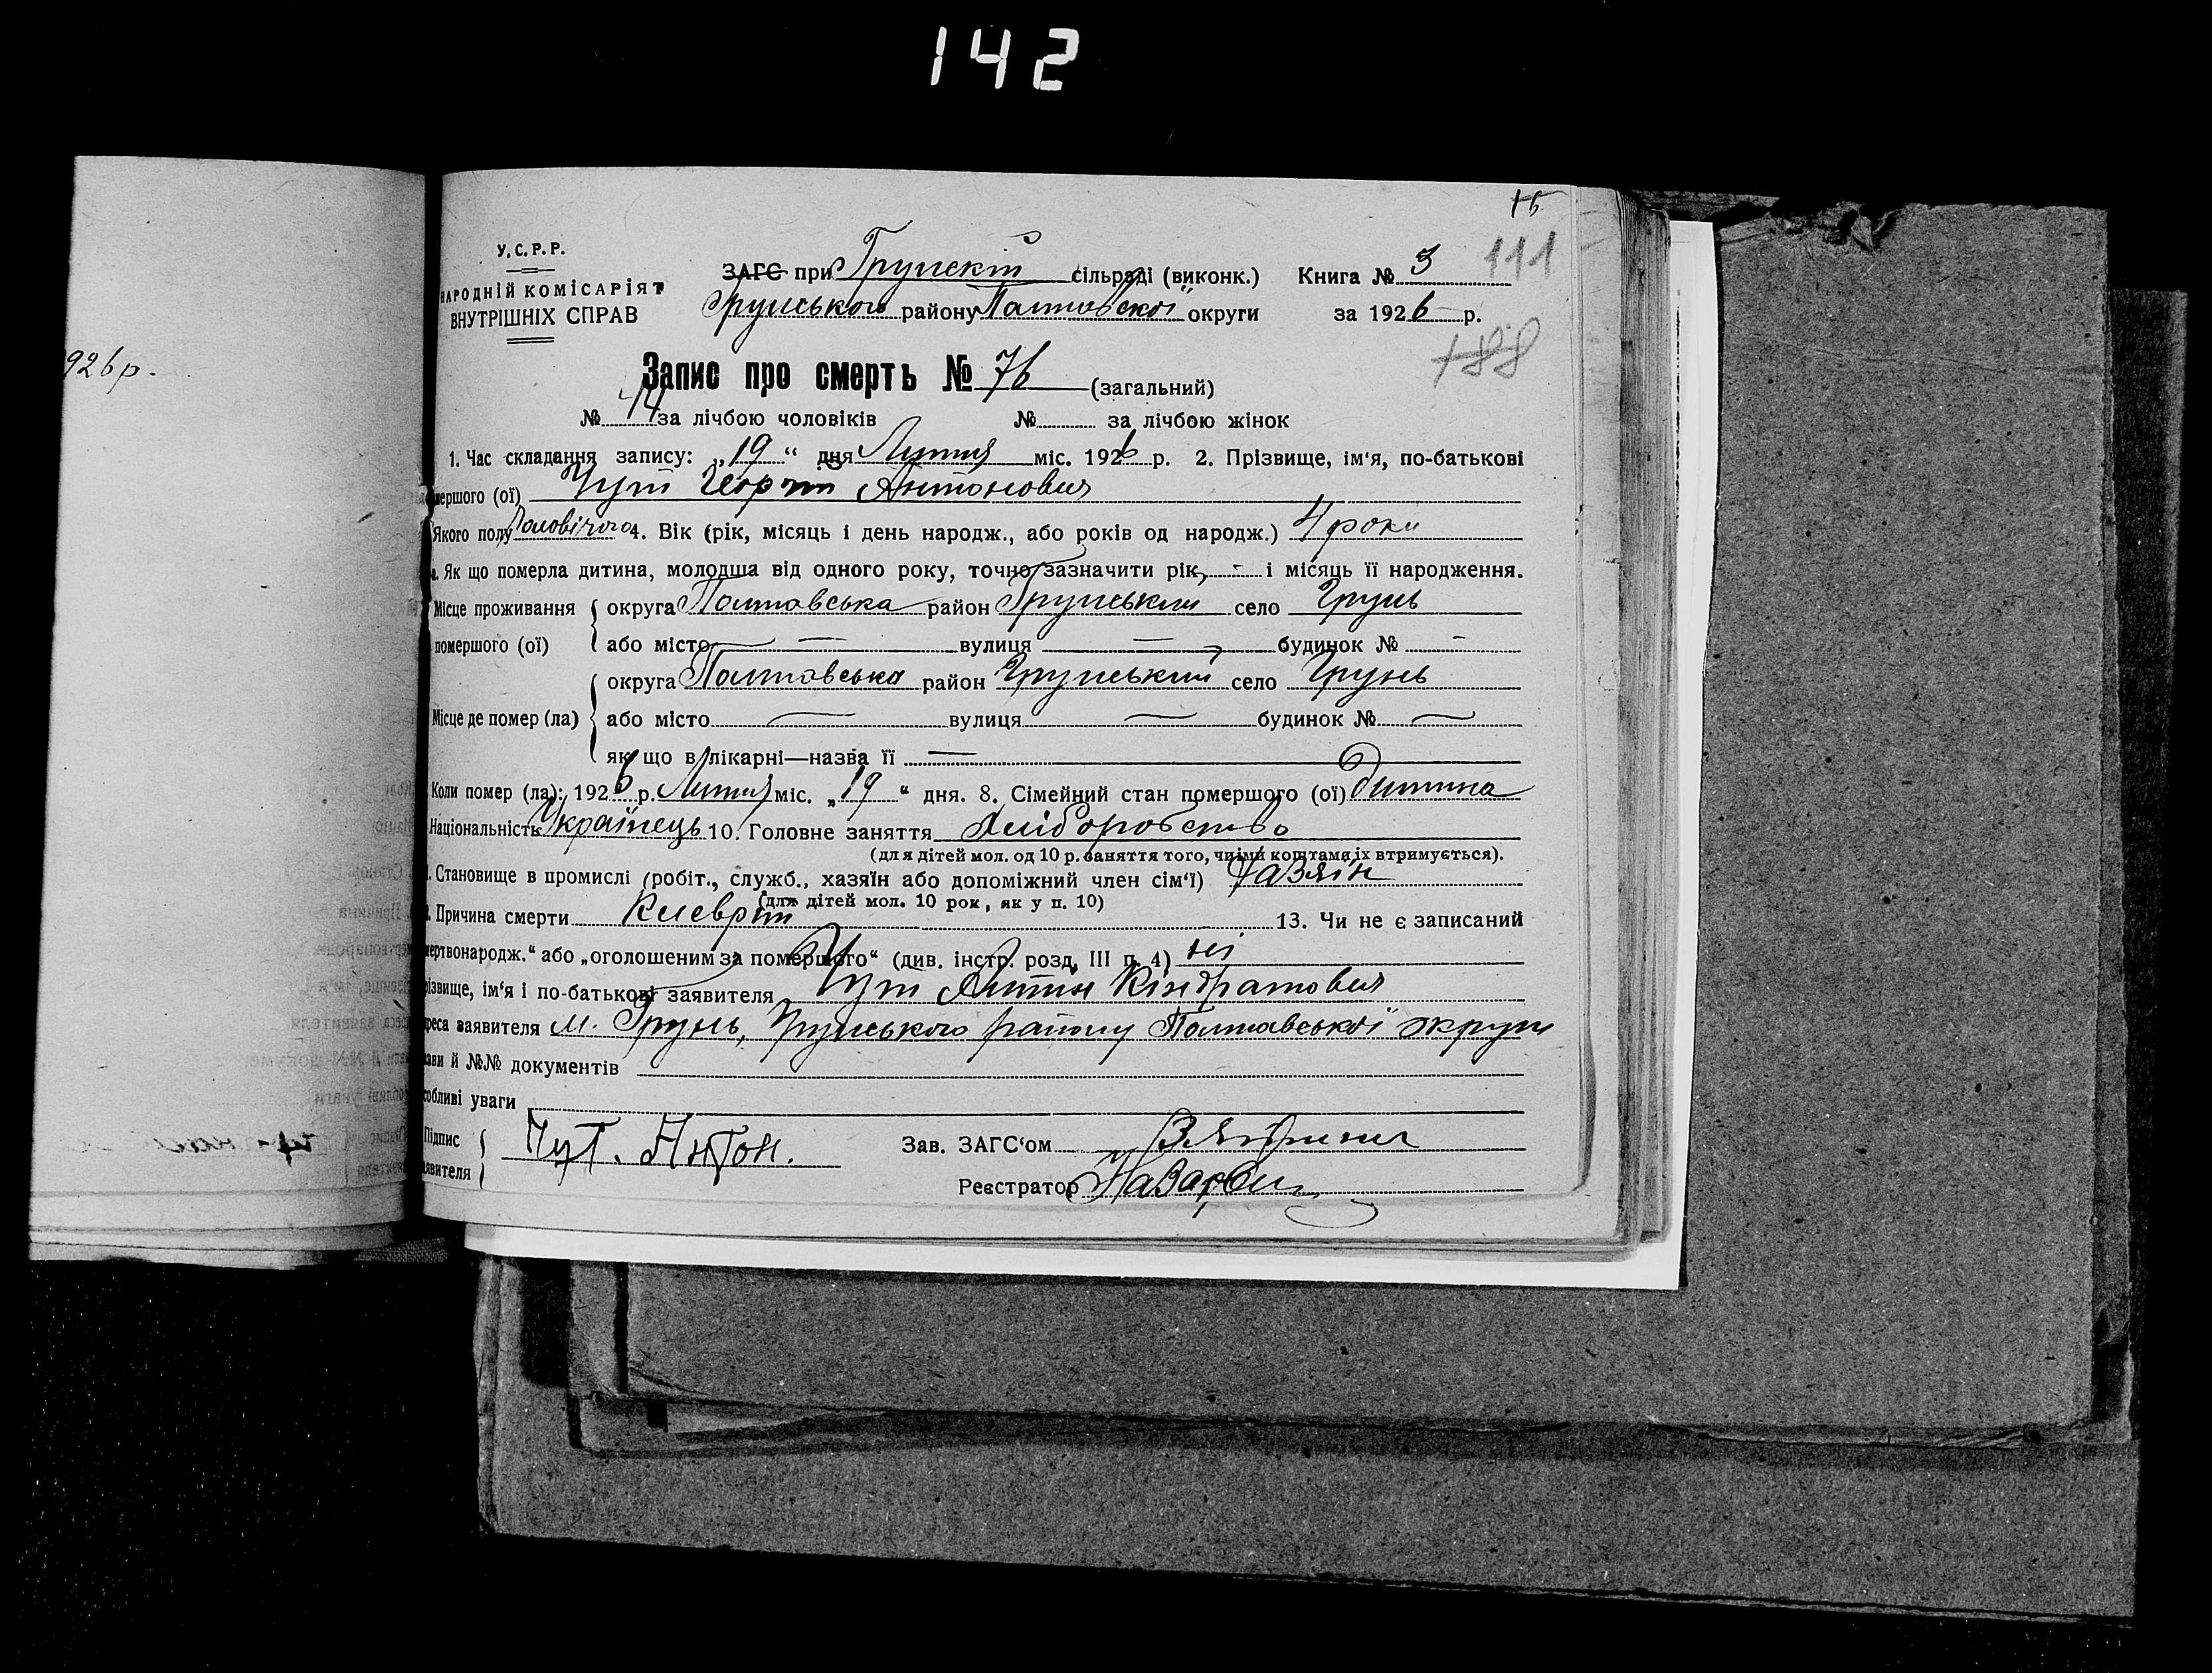 142
15
У.С.Р.Р.
НАРОДНІЙ КОМІСАРІЯТ
ВНУТРІШНІХ СПРАВ
ЗАГС при Грунській сільраді (виконк.) Книга № 3 111
Грунського району Полтавської округи за 1926 р.
188
926 р.
Запис про смерть № 76 (загальний)
№ 44 за лічбою чоловіків № за лічбою жінок
1. Час складання запису: „19“ дня Лютня міс. 1926 р. 2. Прізвище, ім‘я, по-батькові
мершого (ої) Чут Георгій Антонович
Якого полу 4. Вік (рік, місяць і день народж., або років од народж.) 4 роки
а. Як що померла дитина, молодша від одного року, точно зазначити рік, - і місяць її народження.
Місце проживання округа Полтавська район Грунський село Грунь
помершого (ої) або місто — вулиця — будинок № -
округа Полтавська район Грунський село Грунь
Місце де помер (ла) або місто — вулиця — будинок № —
як що в лікарні—назва її —
Коли помер (ла): 1926 р. Лютня міс. „19“ дня. 8. Сімейний стан помершого (ої) дитина
Національність Українець 10. Головне заняття Хліборобство
(для дітей мол. од 10 р. заняття того, чиїми коштами їх втримується).
Становище в промислі (робіт., служб., хазяїн або допоміжний член сім‘ї) Хазяін
(для дітей мол. 10 рок, як у п. 10)
Причина смерти 13. Чи не є записаний
мертвонародж.“ або „оголошеним за помершого“ (див. інстр. розд. III п. 4) ні
різвище, ім‘я і по-батькові заявителя Чут Антін Кіндратович
дреса заявителя м. Грунь, Грунського району Полтавської округи
зви й №№ документів
собливі уваги
Підпис
аявителя Чут. Антон. Зав. ЗАГС‘ом
Реєстратор